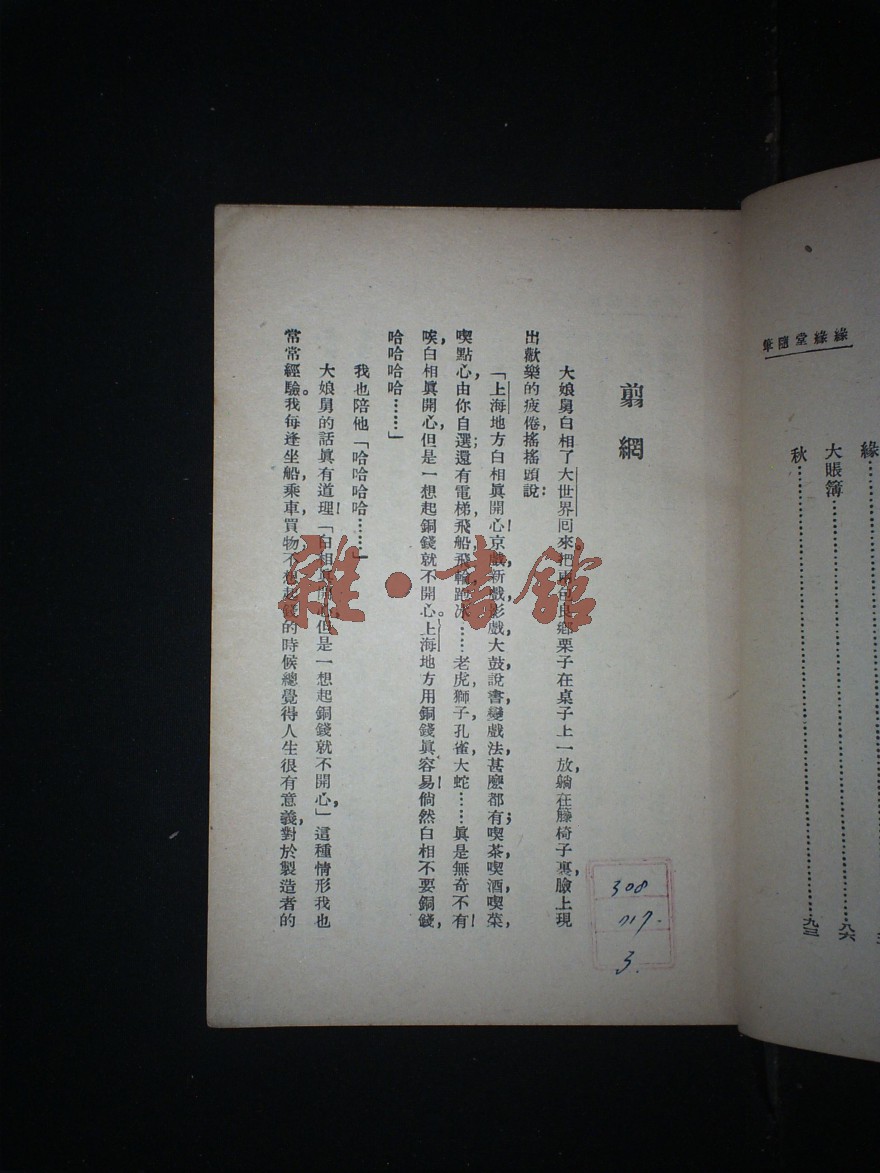 緣緣堂隨筆
緣
大賬簿……九六
秋……九三
翦網
大娘舅白相了大世界回來。把兩包良鄉栗子在桌子上一放，躺在籐椅子裏，臉上現
出歡樂的疲倦，搖搖頭說：
「上海地方白相眞開心！京戲，新戲，影戲，大鼓，說書，變戲法，甚麼都有；喫茶，喫酒，喫菜，
喫點心，由你自選；還有電梯，飛船，飛輪，跑冰……老虎，獅子，孔雀，大蛇……眞是無奇不有！
唉，白相眞開心，但是一想起銅錢就不開心。上海地方用銅錢眞容易！倘然白相不要銅錢，
哈哈哈哈……」
我也陪他「哈哈哈哈……」
大娘舅的話眞有道理！「白相眞開心，但是一想起銅錢就不開心，」這種情形我也
常常經驗。我每逢坐船，乘車，買物，不想起錢的時候總覺得人生很有意義，對於製造者的
308
717.
3.
雜·書館